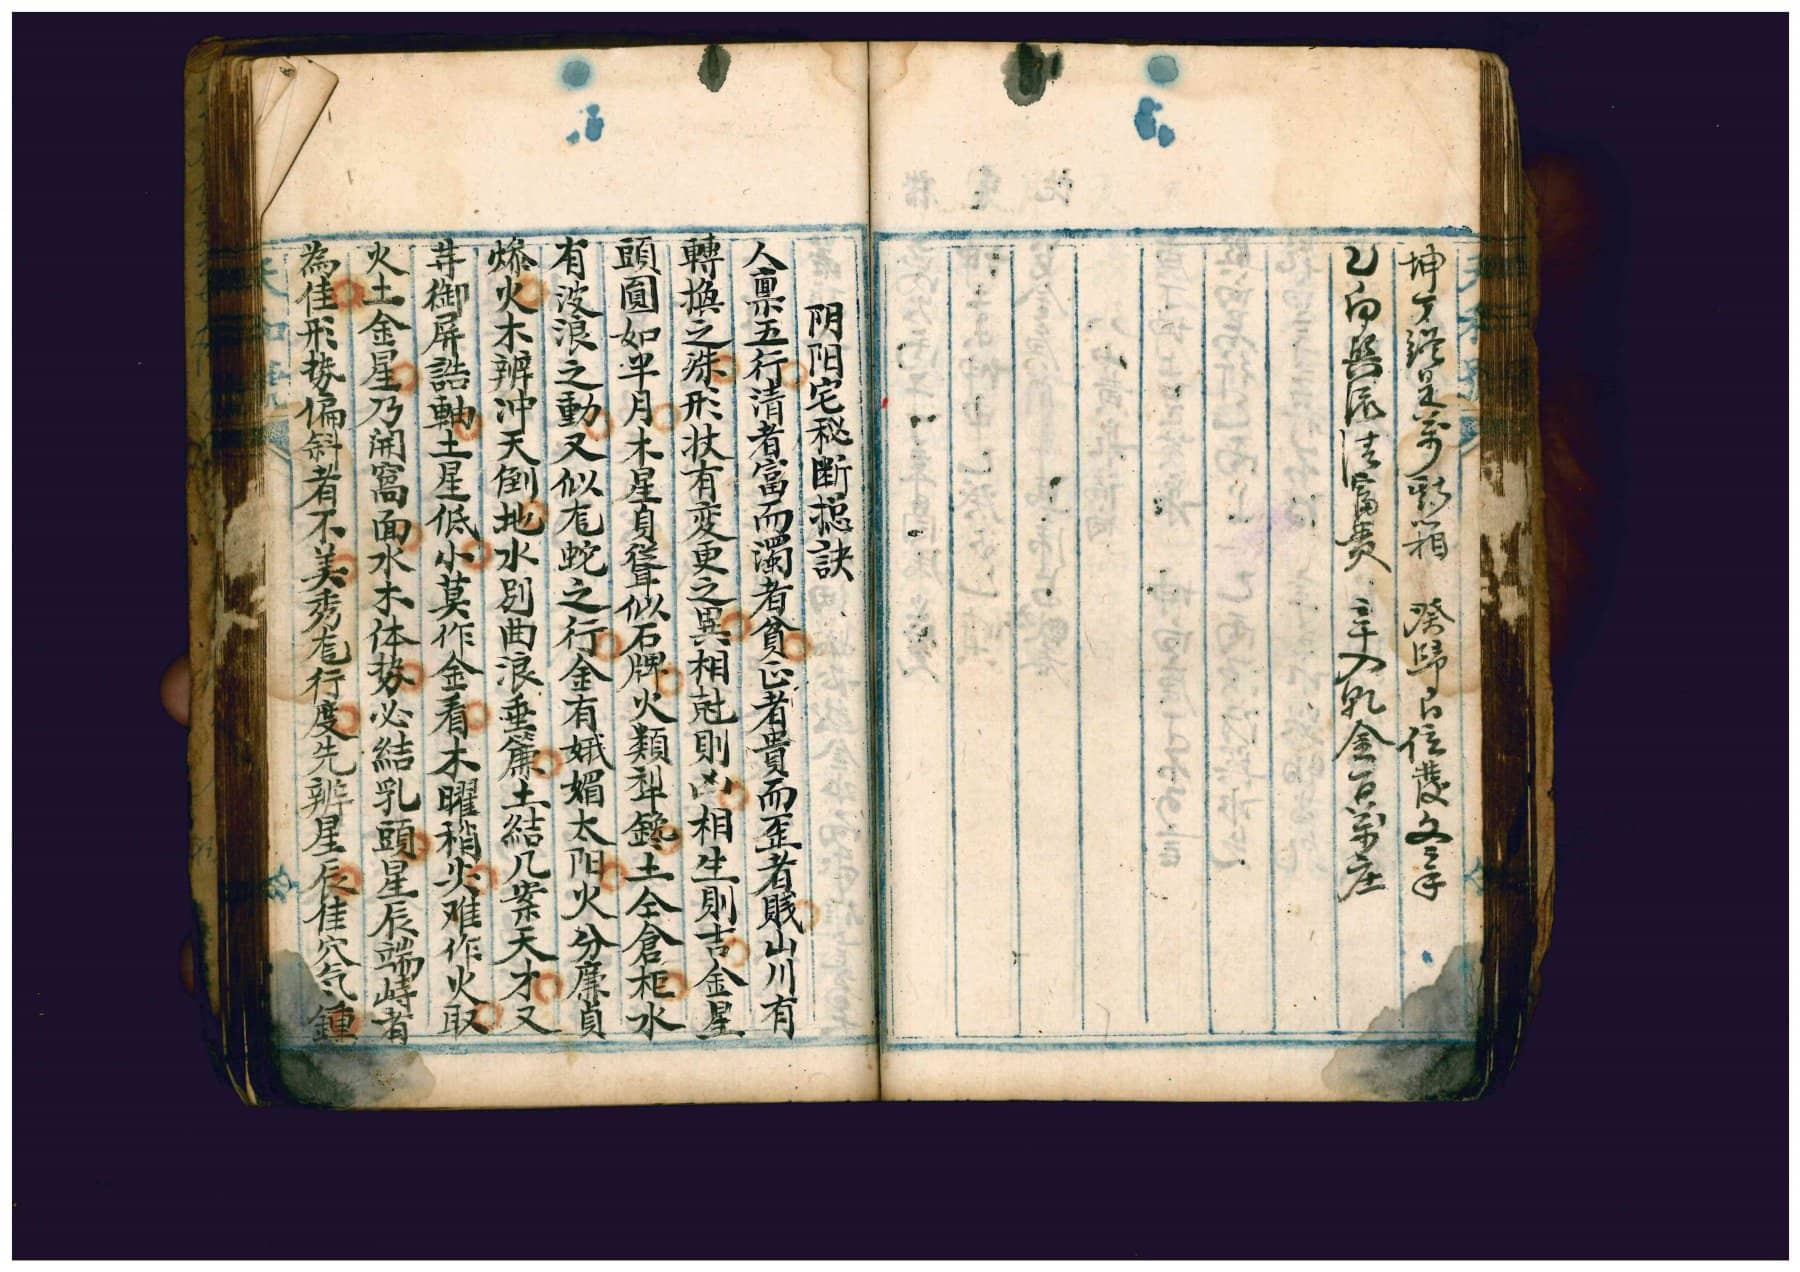 坤方鐙是萬斯箱　癸歸艮位發文章
乙向巽流清富貴　辛入乹金百萬庄
阴阳宅秘断捴訣
人禀五行清者富而濁者貧正者貴而歪者賎山川有
轉換之殊形状有変更之異相尅則凶相生則吉金星
頭圓如半月木星身聳似石牌火類犁鑱土仝倉柜水
有波浪之動又似尨蛇之行金有娥媚太阳火分廉貞
燎火木辨冲天倒地水别曲浪垂簾土結几案天才又
并御屏誥軸土星低小莫作金看木曜稍尖难作火取
火土金星乃開窩面水木体势必結乳頭星辰端峙者
為佳形势偏斜者不美秀尨行度先辨星辰佳穴气鍾